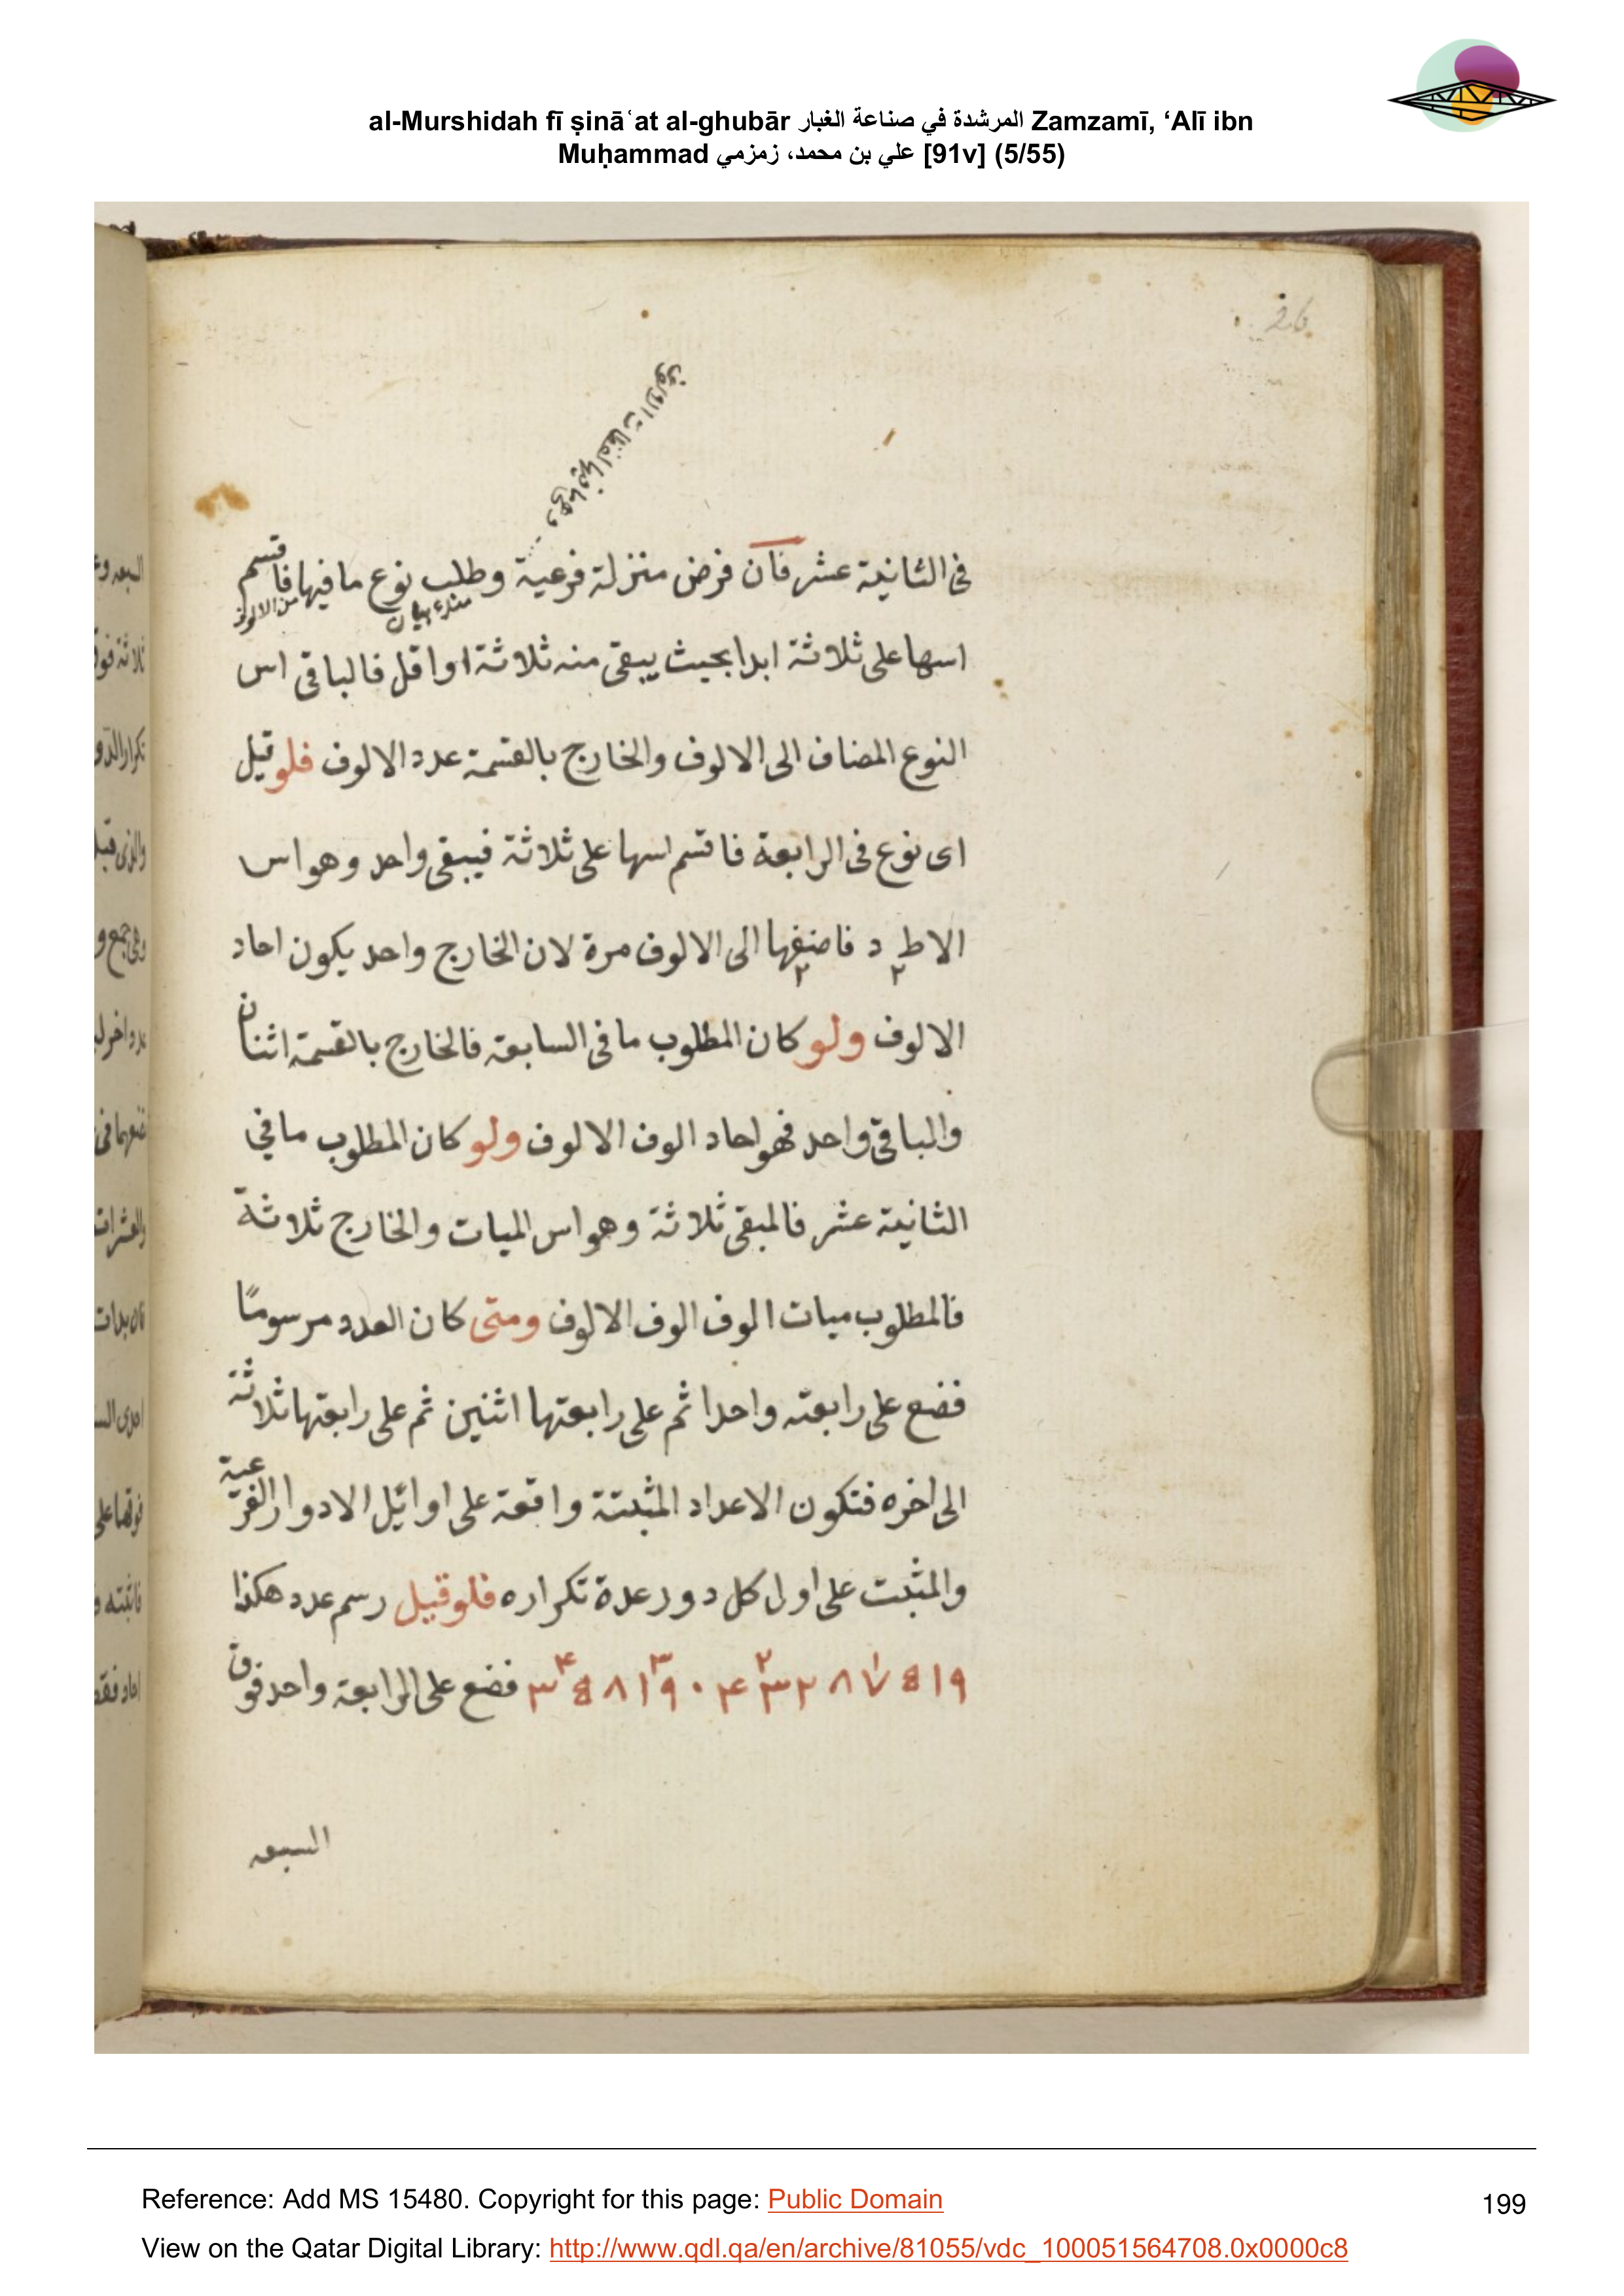 al-Murshidah fī ṣināʿat al-ghubār المرشدة في صناعة الغبار Zamzamī, ‘Alī ibn
Muḥammad علي بن محمد، زمزمي [91v] (5/55)
26
فى الثانية عشر فان فرض منزلة فرعية وطلب نوع ما فيها فاقسم
من الالوف
اسها على ثلاثة ابدا بحيث يبقى منه ثلاثة او اقل فالباقى اس
النوع المضاف الى الالوف والخارج بالقسمة عدد الالوف فلو قيل
اى نوع فى الرابعة فاقسم اسها على ثلاثة فيبقى واحد وهو اس
الاحاد فاضفها الى الالوف مرة لان الخارج واحد يكون احاد
الالوف ولو كان المطلوب ما فى السابعة فالخارج بالقسمة اثنان
والباقى واحد فهو احاد الوف الالوف ولو كان المطلوب ما في
الثانية عشر فالمبقى ثلاثة وهو اس الميات والخارج ثلاثة
فالمطلوب ميات الوف الوف الالوف ومتى كان العدد مرسومًا
فضع على رابعته واحدا ثم على رابعتها اثنين ثم على رابعتها ثلاثة
الى اخره فتكون الاعداد المثبتة واقعة على اوائل الادوار الفرعية
والمثبت على اول كل دور عدة تكراره فلو قيل رسم عدد هكذا
فضع على الرابعة واحد فوق
السبعه
Reference: Add MS 15480. Copyright for this page: Public Domain
199
View on the Qatar Digital Library: http://www.qdl.qa/en/archive/81055/vdc_100051564708.0x0000c8